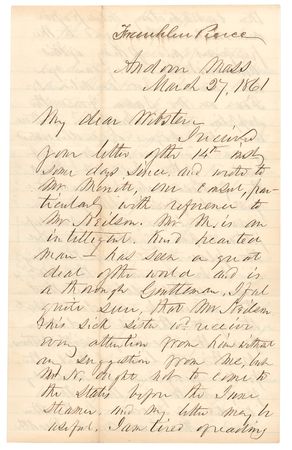 Franklin Pierce
Andover Mass
March 27, 1861
My dear Webster
I received
your letter of the 14th inst,
some days since, and wrote to
Mr. our consul, par-
ticularly with reference to
Mr Neilson. Mr M. is an
intelligent, kind hearted
man— has seen a great
deal of the world and is
a thorough Gentleman. I feel
quite sure, that Mr Neilson
& his sick sister wd receive
every attention from him without
any suggestion from me, but
Mr N. ought not to come to
the States before the June
Steamer, and my letter may be
useful. I am tired of reading